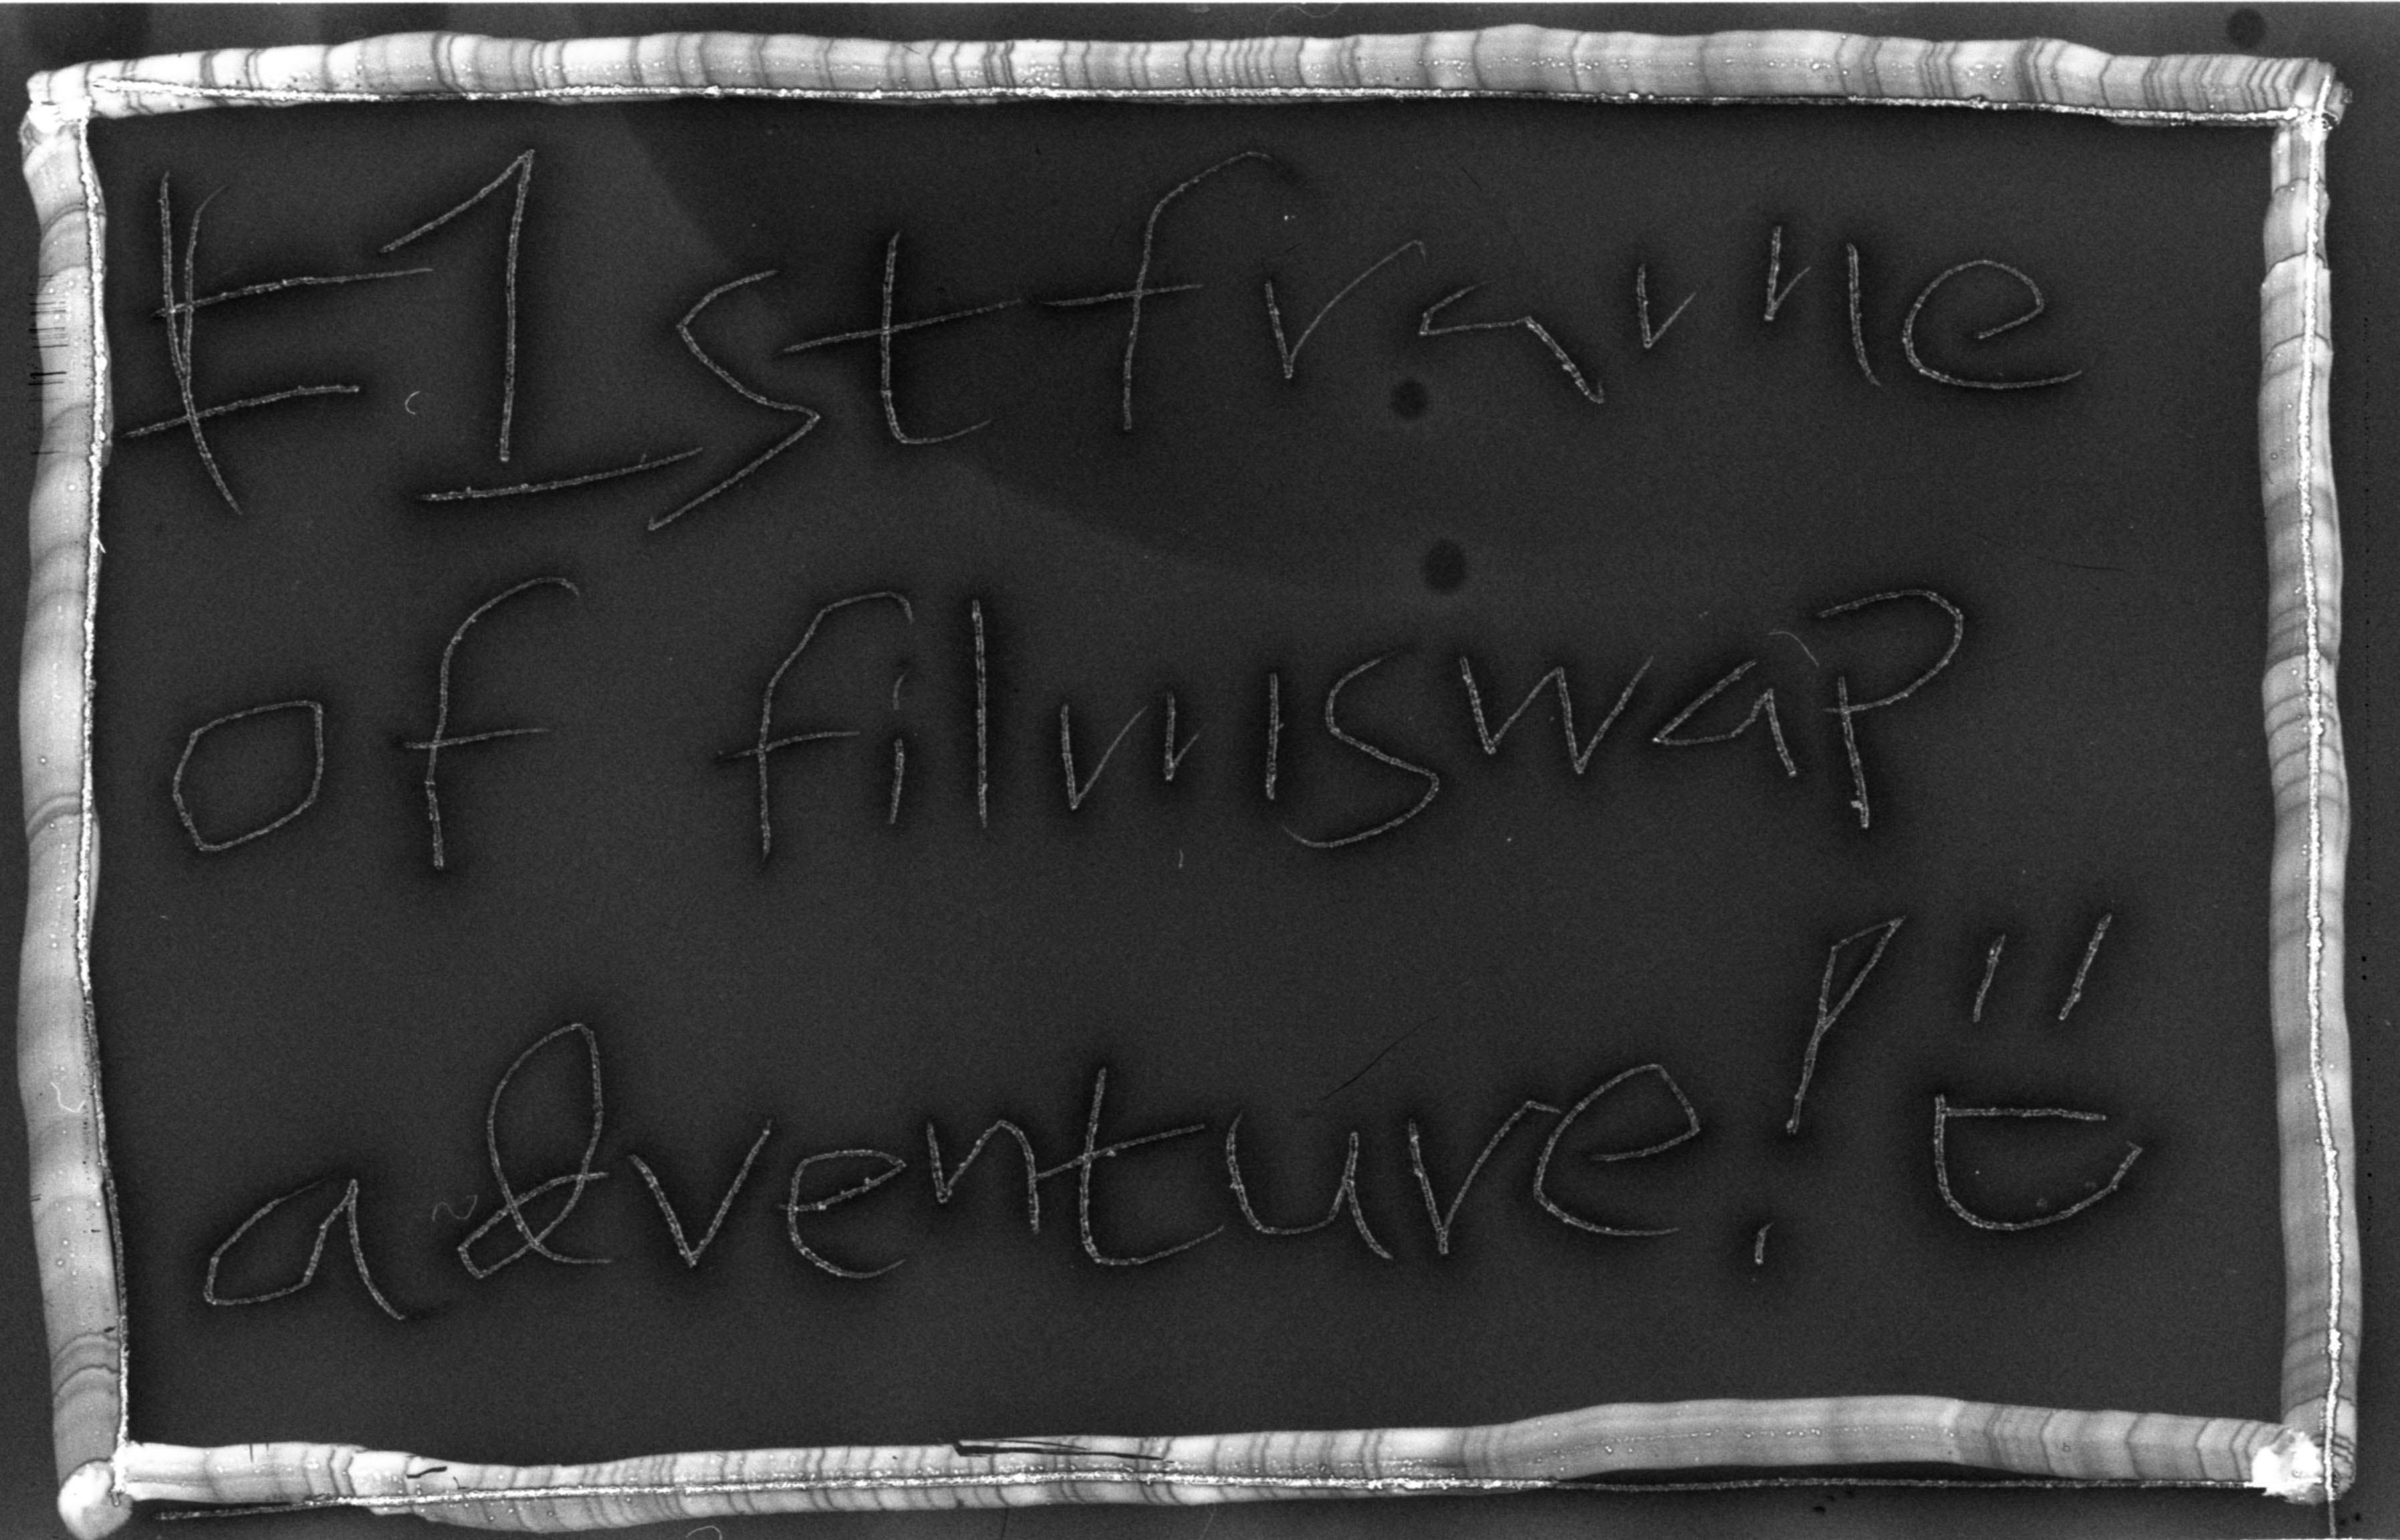 #1st frame
of filmswap
adventure! :D